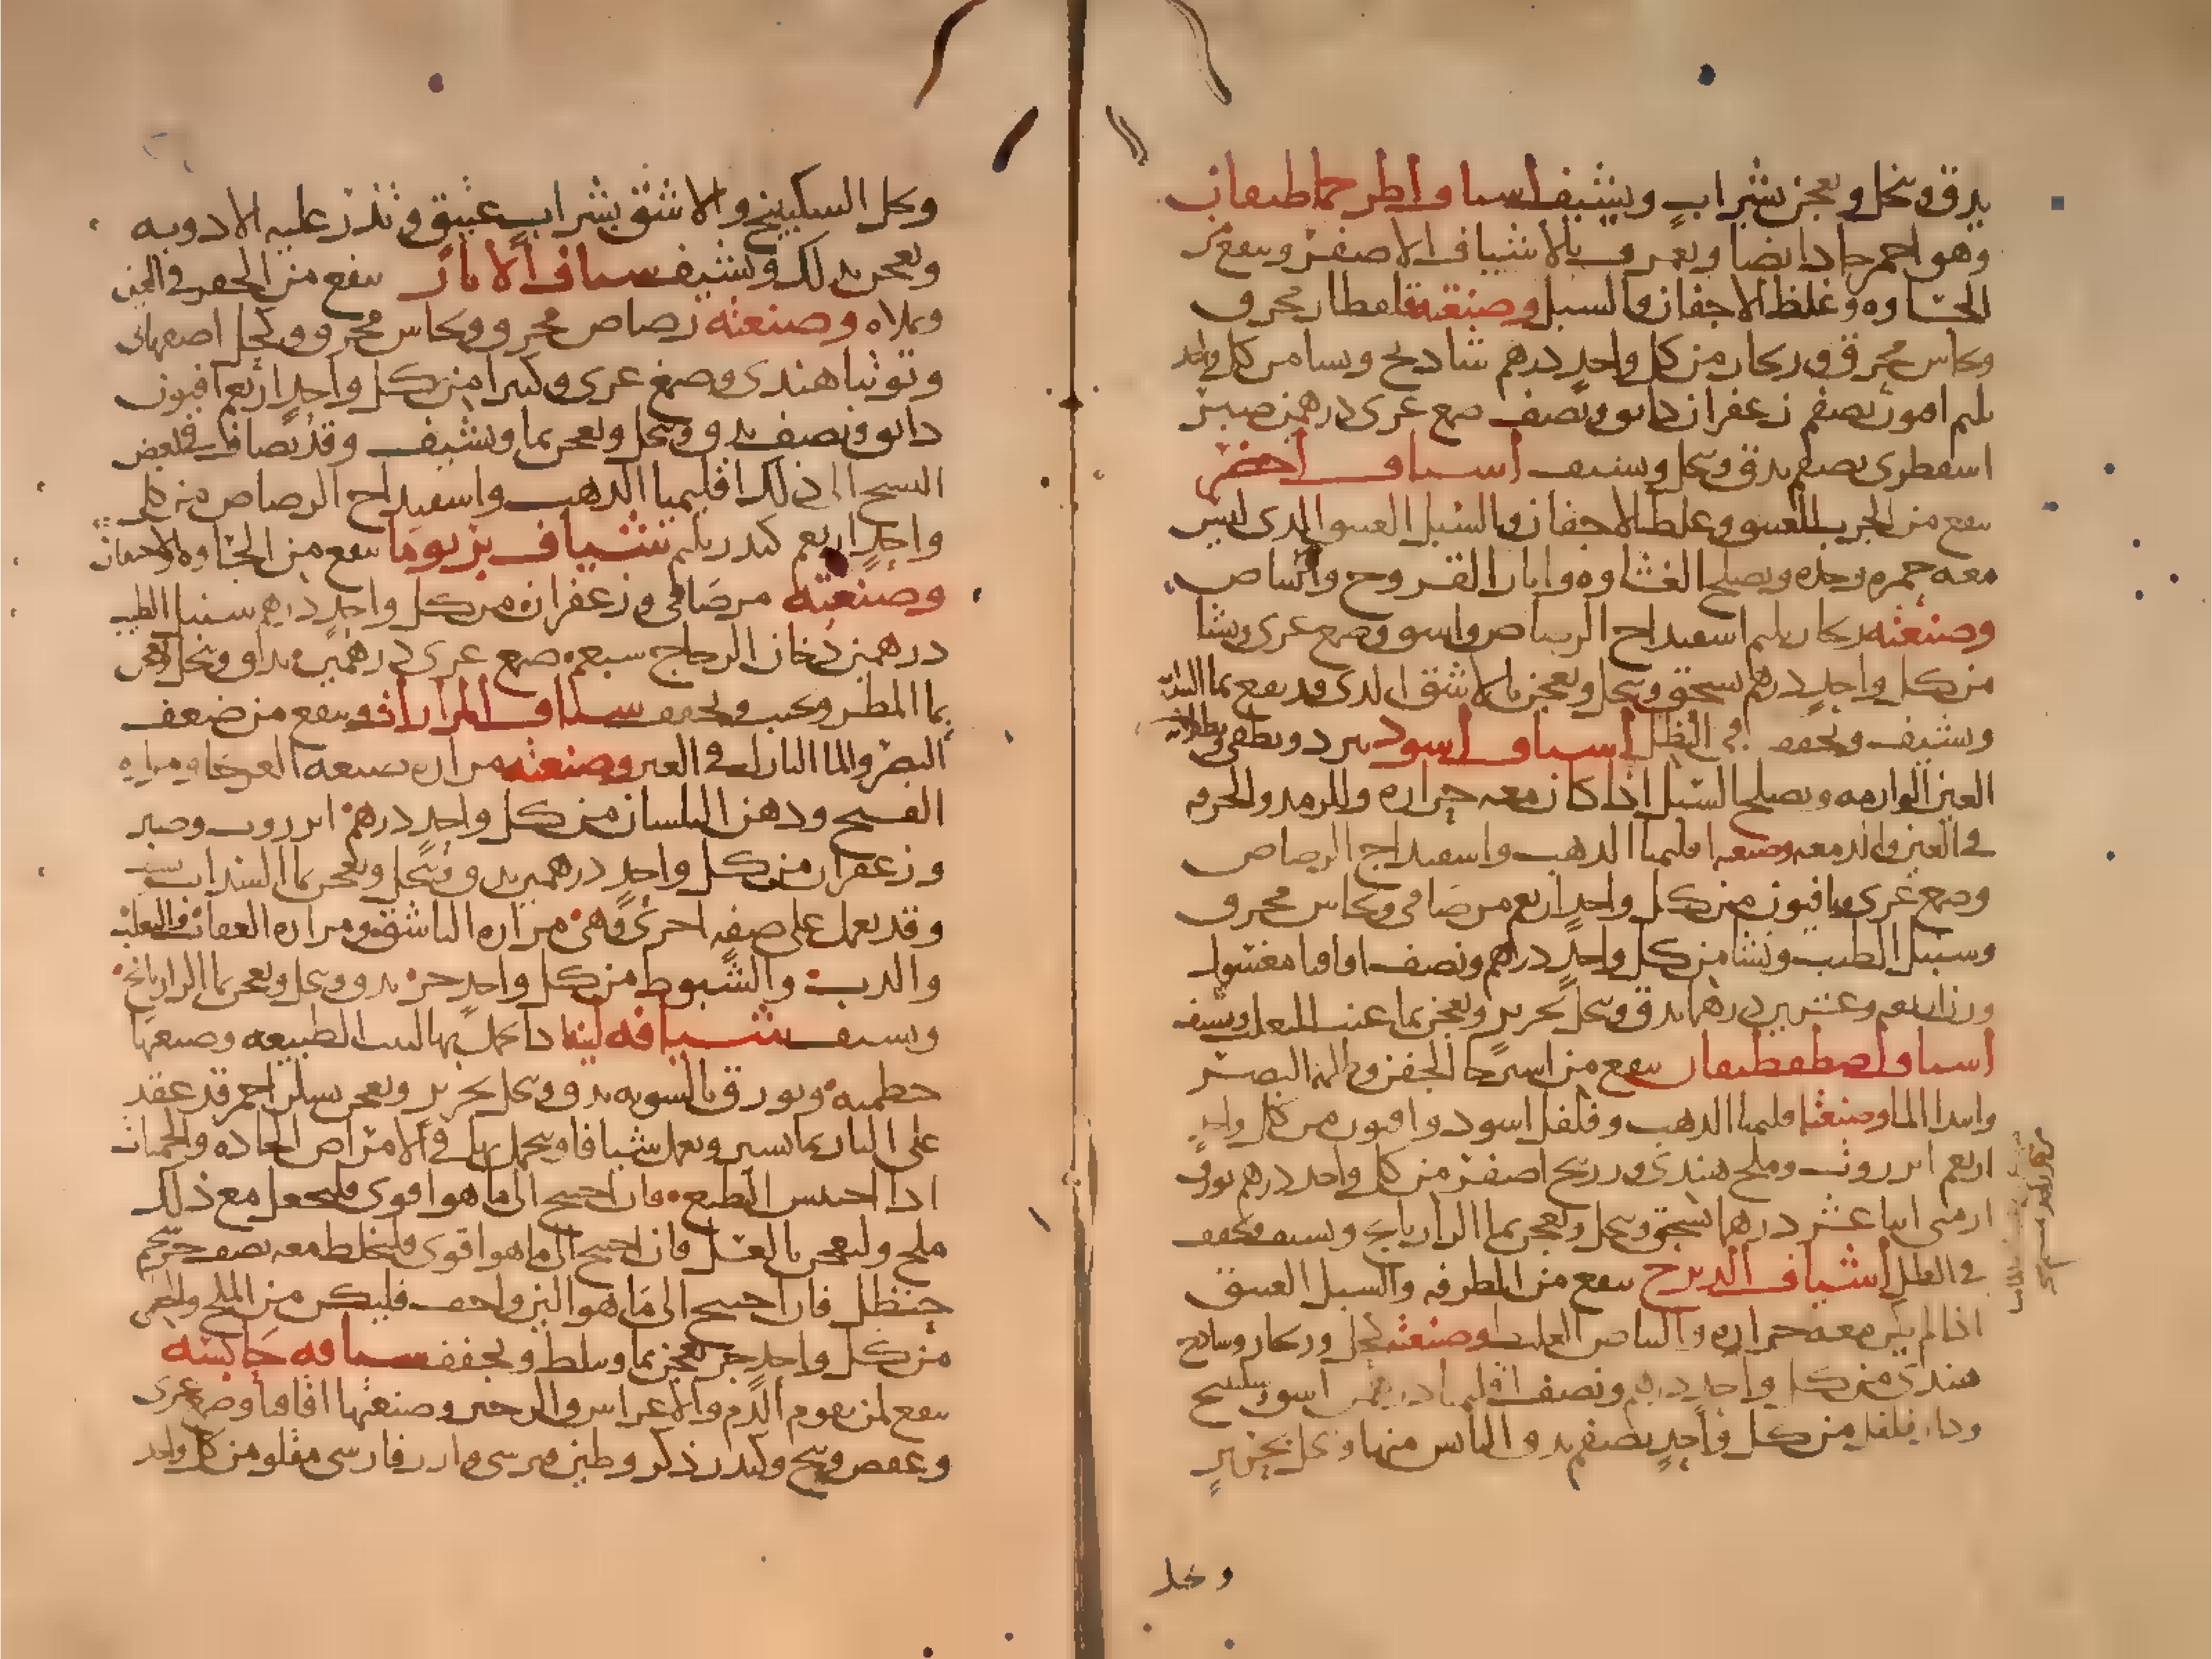 يدق وينخل ويعجن بشراب ويشيف اسياف اطرخماطيقان
وهو احمر حاد ايضا ويعرف بالاشياف الاصفر وينفع من
الخشاوه وغلظ الاجفان والسبل وصنعته قلقطار محرق
ونحاس محرق وزنجار من كل واحد درهم شادنج ونشا من كل واحد
افيون نصف زعفران دانق ونصف صمغ عربى درهمين صبر
اسقطرى نصف يدق وينخل ويشيف اسياف اخضر
ينفع من الجرب العتيق وغلظ الاجفان والسبل العتيق الذى ليس
معه حمره وحده ويصلح الغشاوه واثار القروح والبياض
وصنعته زنجار اسفيداج الرصاص واشق وصمغ عربى ونشا
من كل واحد درهم يسحق وينخل ويعجن بالاشق الذى قد نقع بما السداب
ويشيف ويجفف فى الظل اسياف اسود يبرد ويطفى
العين الوارمه ويصلح السبل اذا كان معه حراره والرمد والحمره
فى العين والدمعه وصنعته اقليميا الذهب واسفيداج الرصاص
وصمغ عربى وافيون من كل واحد اربع مر صافى ونحاس محرق
وسنبل الطيب ونشا من كل واحد درهم ونصف اقاقيا مغسول
وزن اربعه وعشرين درهما يدق وينخل بحرير ويعجن بما عنب الثعلب ويشيف
اسياف اصطفطيقان ينفع من استرخا الجفن وظلمة البصر
وابتدا الما وصنعته اقليميا الذهب وفلفل اسود وافيون من كل واحد
اربع انزروت وملح هندى وزرنيخ اصفر من كل واحد درهم بورق
ارمنى اثنا عشر درهما يسحق وينخل ويعجن بما الرازيانج ويشيف ويجفف
فى الظل اشياف الديزج ينفع من الطرفه والسبل العتيق
اذا لم يكن معه حراره والبياض الغليظ وصنعته كحل وزنجار وسادج
هندى من كل واحد درهم ونصف اقليميا درهمين اشق سكبينج
ودار فلفل من كل واحد نصف يدق اليابس منها وينخل بحرير
وتحل
وتحل السكبينج والاشق بشراب عتيق وتذر عليه الادويه
ويعجن بذلك ويشيف سياف الابار ينفع من الحفر فى العين
ويملاه وصنعته رصاص محرق ونحاس محرق وكحل اصفهانى
وتوتيا هندى وصمغ عربى وكثيرا من كل واحد اربع افيون
دانق ونصف يدق وينخل ويعجن بما ويشيف وقد يضاف فى بعض
النسخ الى ذلك اقليميا الذهب واسفيداج الرصاص من كل
واحد اربع كندر شياف بزيوما ينفع من الخشاوه والاجفان
وصنعته مر صافى وزعفران من كل واحد درهم سنبل الطيب
درهمين دخان الزجاج سبعه صمغ عربى درهمين يدق وينخل ويعجن
بما المطر ويحبب ويجفف سياف المرارات وينفع من ضعف
البصر والما النازل فى العين وصنعته مراره ضبعه العرجا ومراره
القبج ودهن البلسان من كل واحد درهم انزروت وصبر
وزعفران من كل واحد درهمين يدق وينخل ويعجن بما السداب
وقد يعمل على صفه اخرى وهى مراره الباشق ومراره العقاب والثعلب
والدب والشبوط من كل واحد جز يدق وينخل ويعجن بما الرازيانج
ويشيف شيافه لينه اذا تحمل بها لينت الطبيعه وصنعتها
خطميه وبورق بالسويه يدق وينخل بحرير ويعجن بسكر احمر قد عقد
على النار بما يسير ويعمل شيافا ويتحمل بها فى الامراض الحاده والحميات
اذا احتبس الطبع فان احتيج الى ما هو اقوى فليجعل مع ذلك
ملح وليعجن بالعسل فان احتيج الى ما هو اقوى فليخلط معه نصف جز شحم
حنظل فان احتيج الى ما هو الين واخف فليكن من الملح والخطمى
من كل واحد جز يعجن بما وسلط ويجفف سيافه حابسه
ينفع لمن يقوم الدم والاعراس والزحير وصنعتها اقاقيا وصمغ عربى
وعفص وبنج وكندر ذكر وطين قبرسى وارز فارسى مقلو من كل واحد